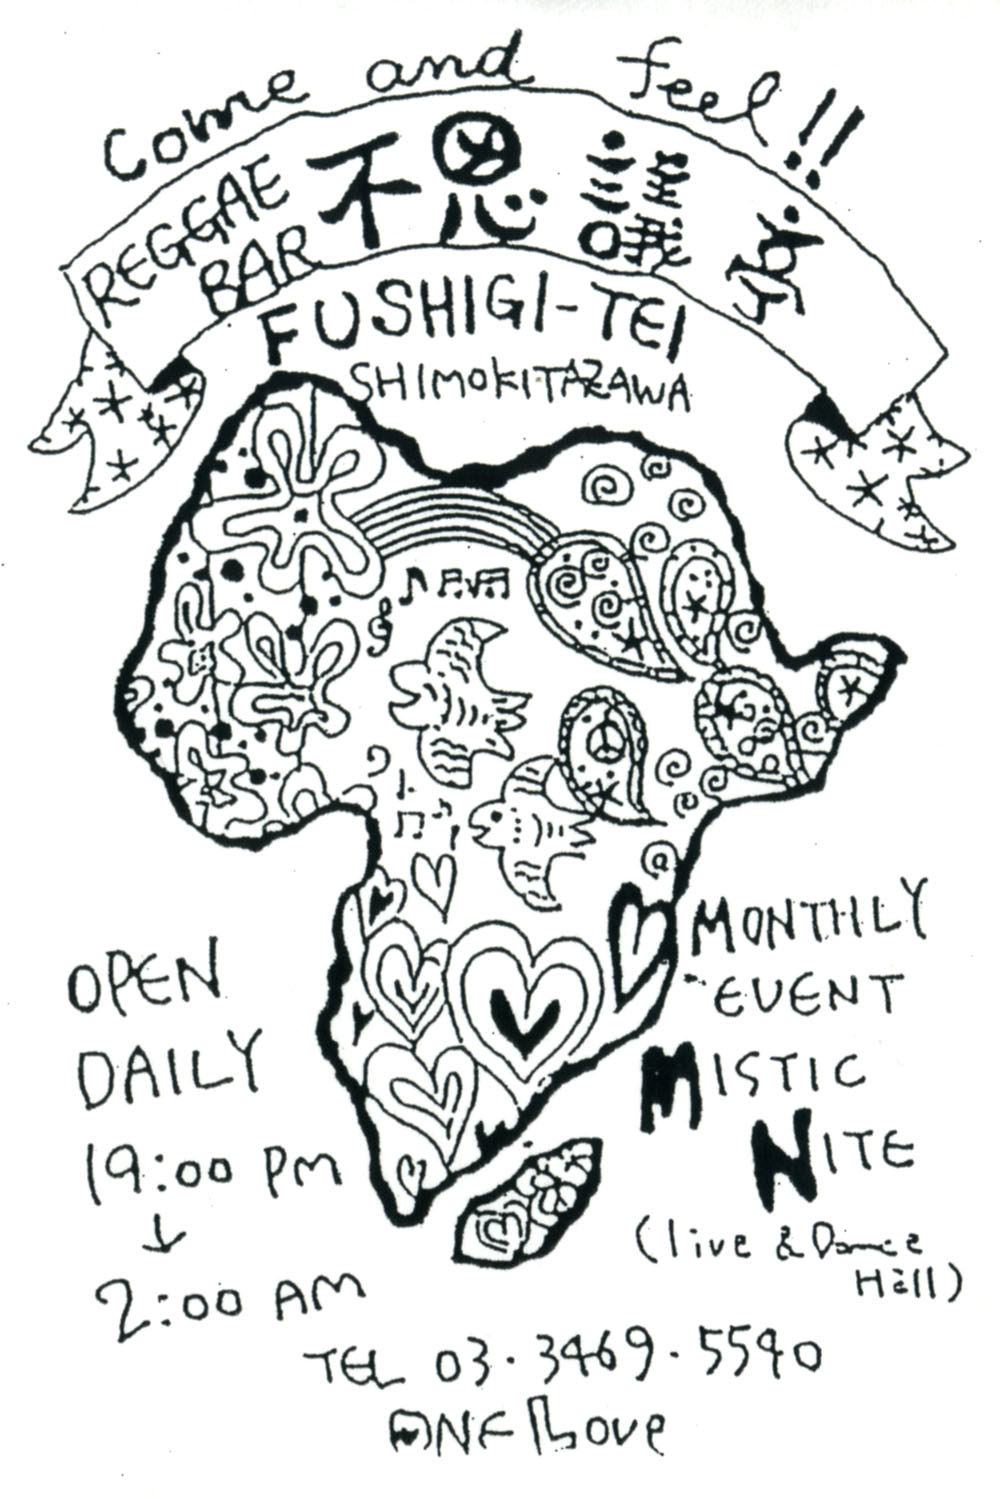 Come and feel!!
REGGAE BAR 不思議亭
FUSHIGI-TEI
SHIMOKITAZAWA
OPEN
DAILY
19:00 PM
↓
2:00 AM
MONTHLY
EVENT
MISTIC
NITE
(live & Dance
Hall)
TEL 03・3469・5590
ONE Love